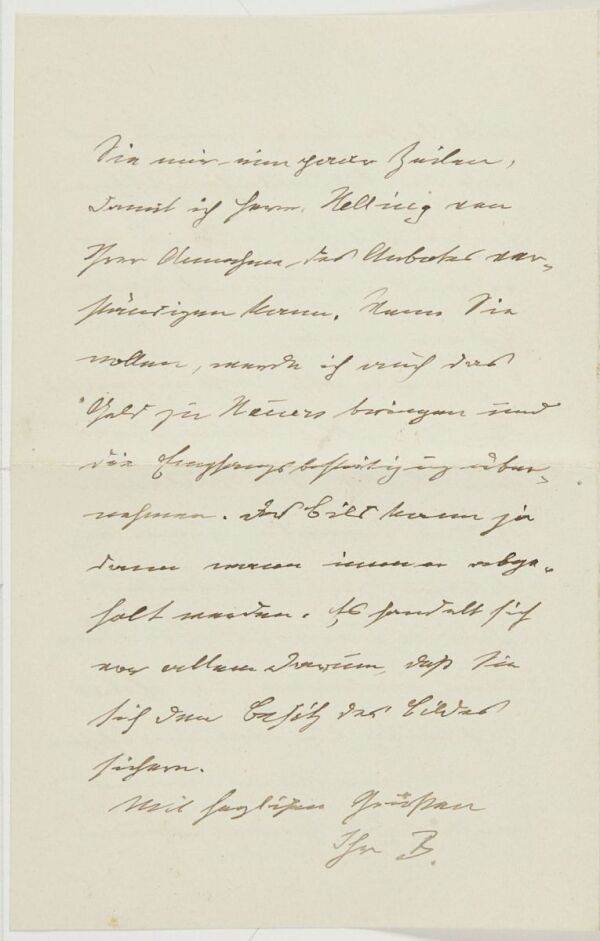 Sie mir ein paar Zeilen,
damit ich Herrn Helling von
Ihrer Annahme des Anbotes ver-
ständigen kann. Wenn Sie
wollen, werde ich auch das
Geld zu bringen und
die Empfangsbestätigung über-
nehmen. Das Bild kann ja
dann wann immer abge-
holt werden. Es handelt sich
vor allem darum, daß Sie
sich den Besitz des Bildes
sichern.
Mit herzlichen Grüßen
Ihr B.